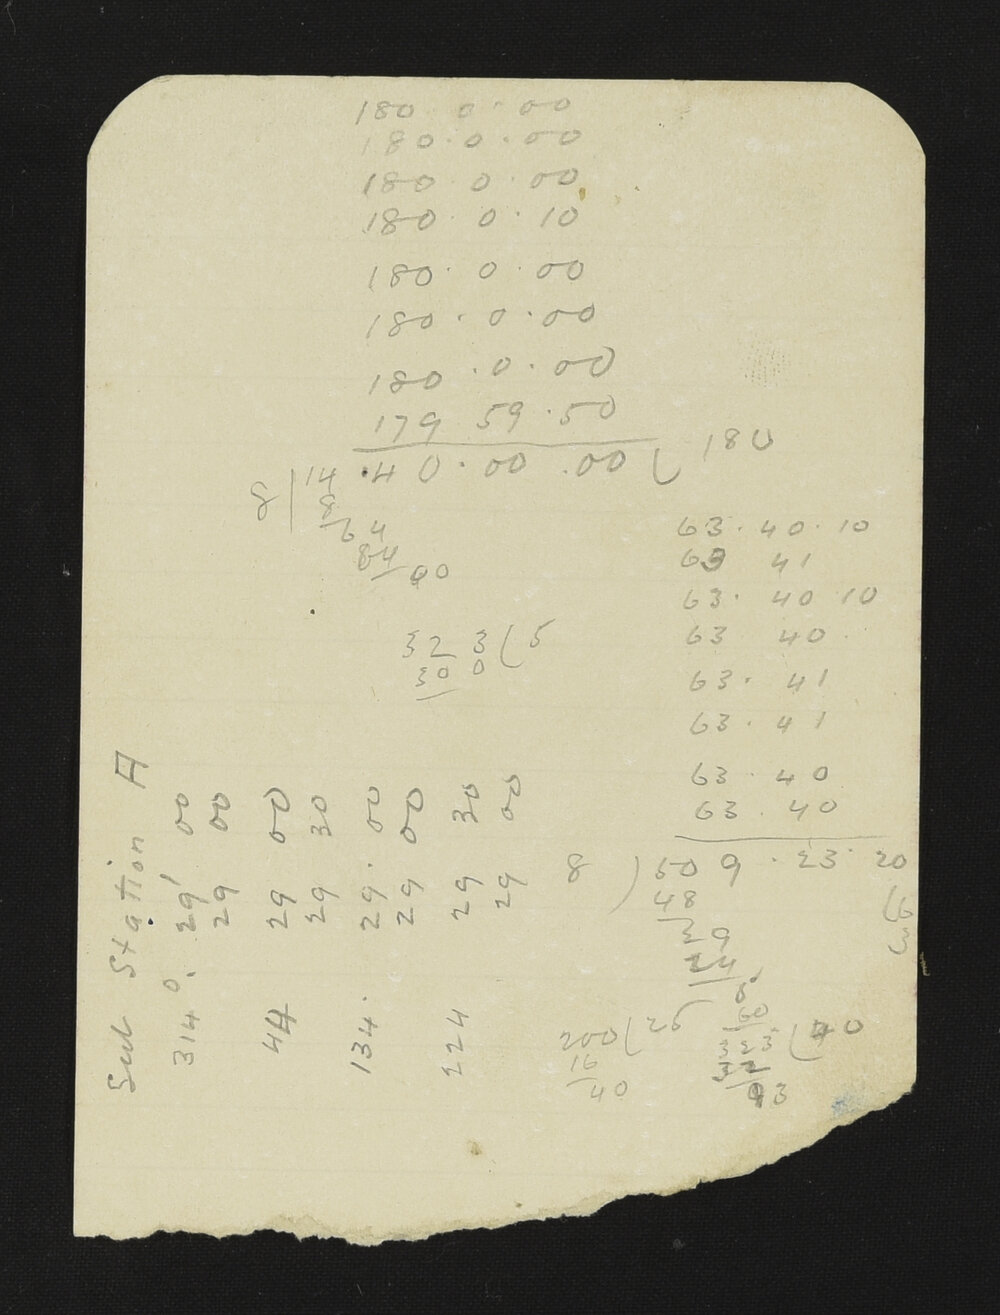 180 · 0 · 00
180 · 0 · 00
180 0 · 00
180 · 0 · 10
180 · 0 · 00
180 · 0 · 00
180 · 0 · 00
179 59 · 50
8 | 14 · 40 · 00 · 00 ) 180
8
64
64
00
323 ( 5
30 0
63 · 40 · 10
63 41
63 · 40 10
63 40
63 · 41
63 · 41
63 · 40
63 · 40
8 ( 509 · 23 · 20
48
29
24
200 ) 25
16
40
60
323 ) 40
32
03
Sub Station A
314° · 29' 00
29 00
44 29 00
29 30
134 · 29 · 00
29 00
224 29 30
29 00